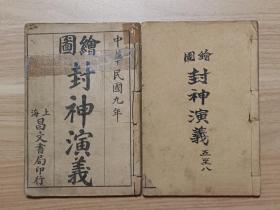 中
民國九年
繪圖
封神演義
上海
昌文書局印行
繪圖
封神演義
五至八